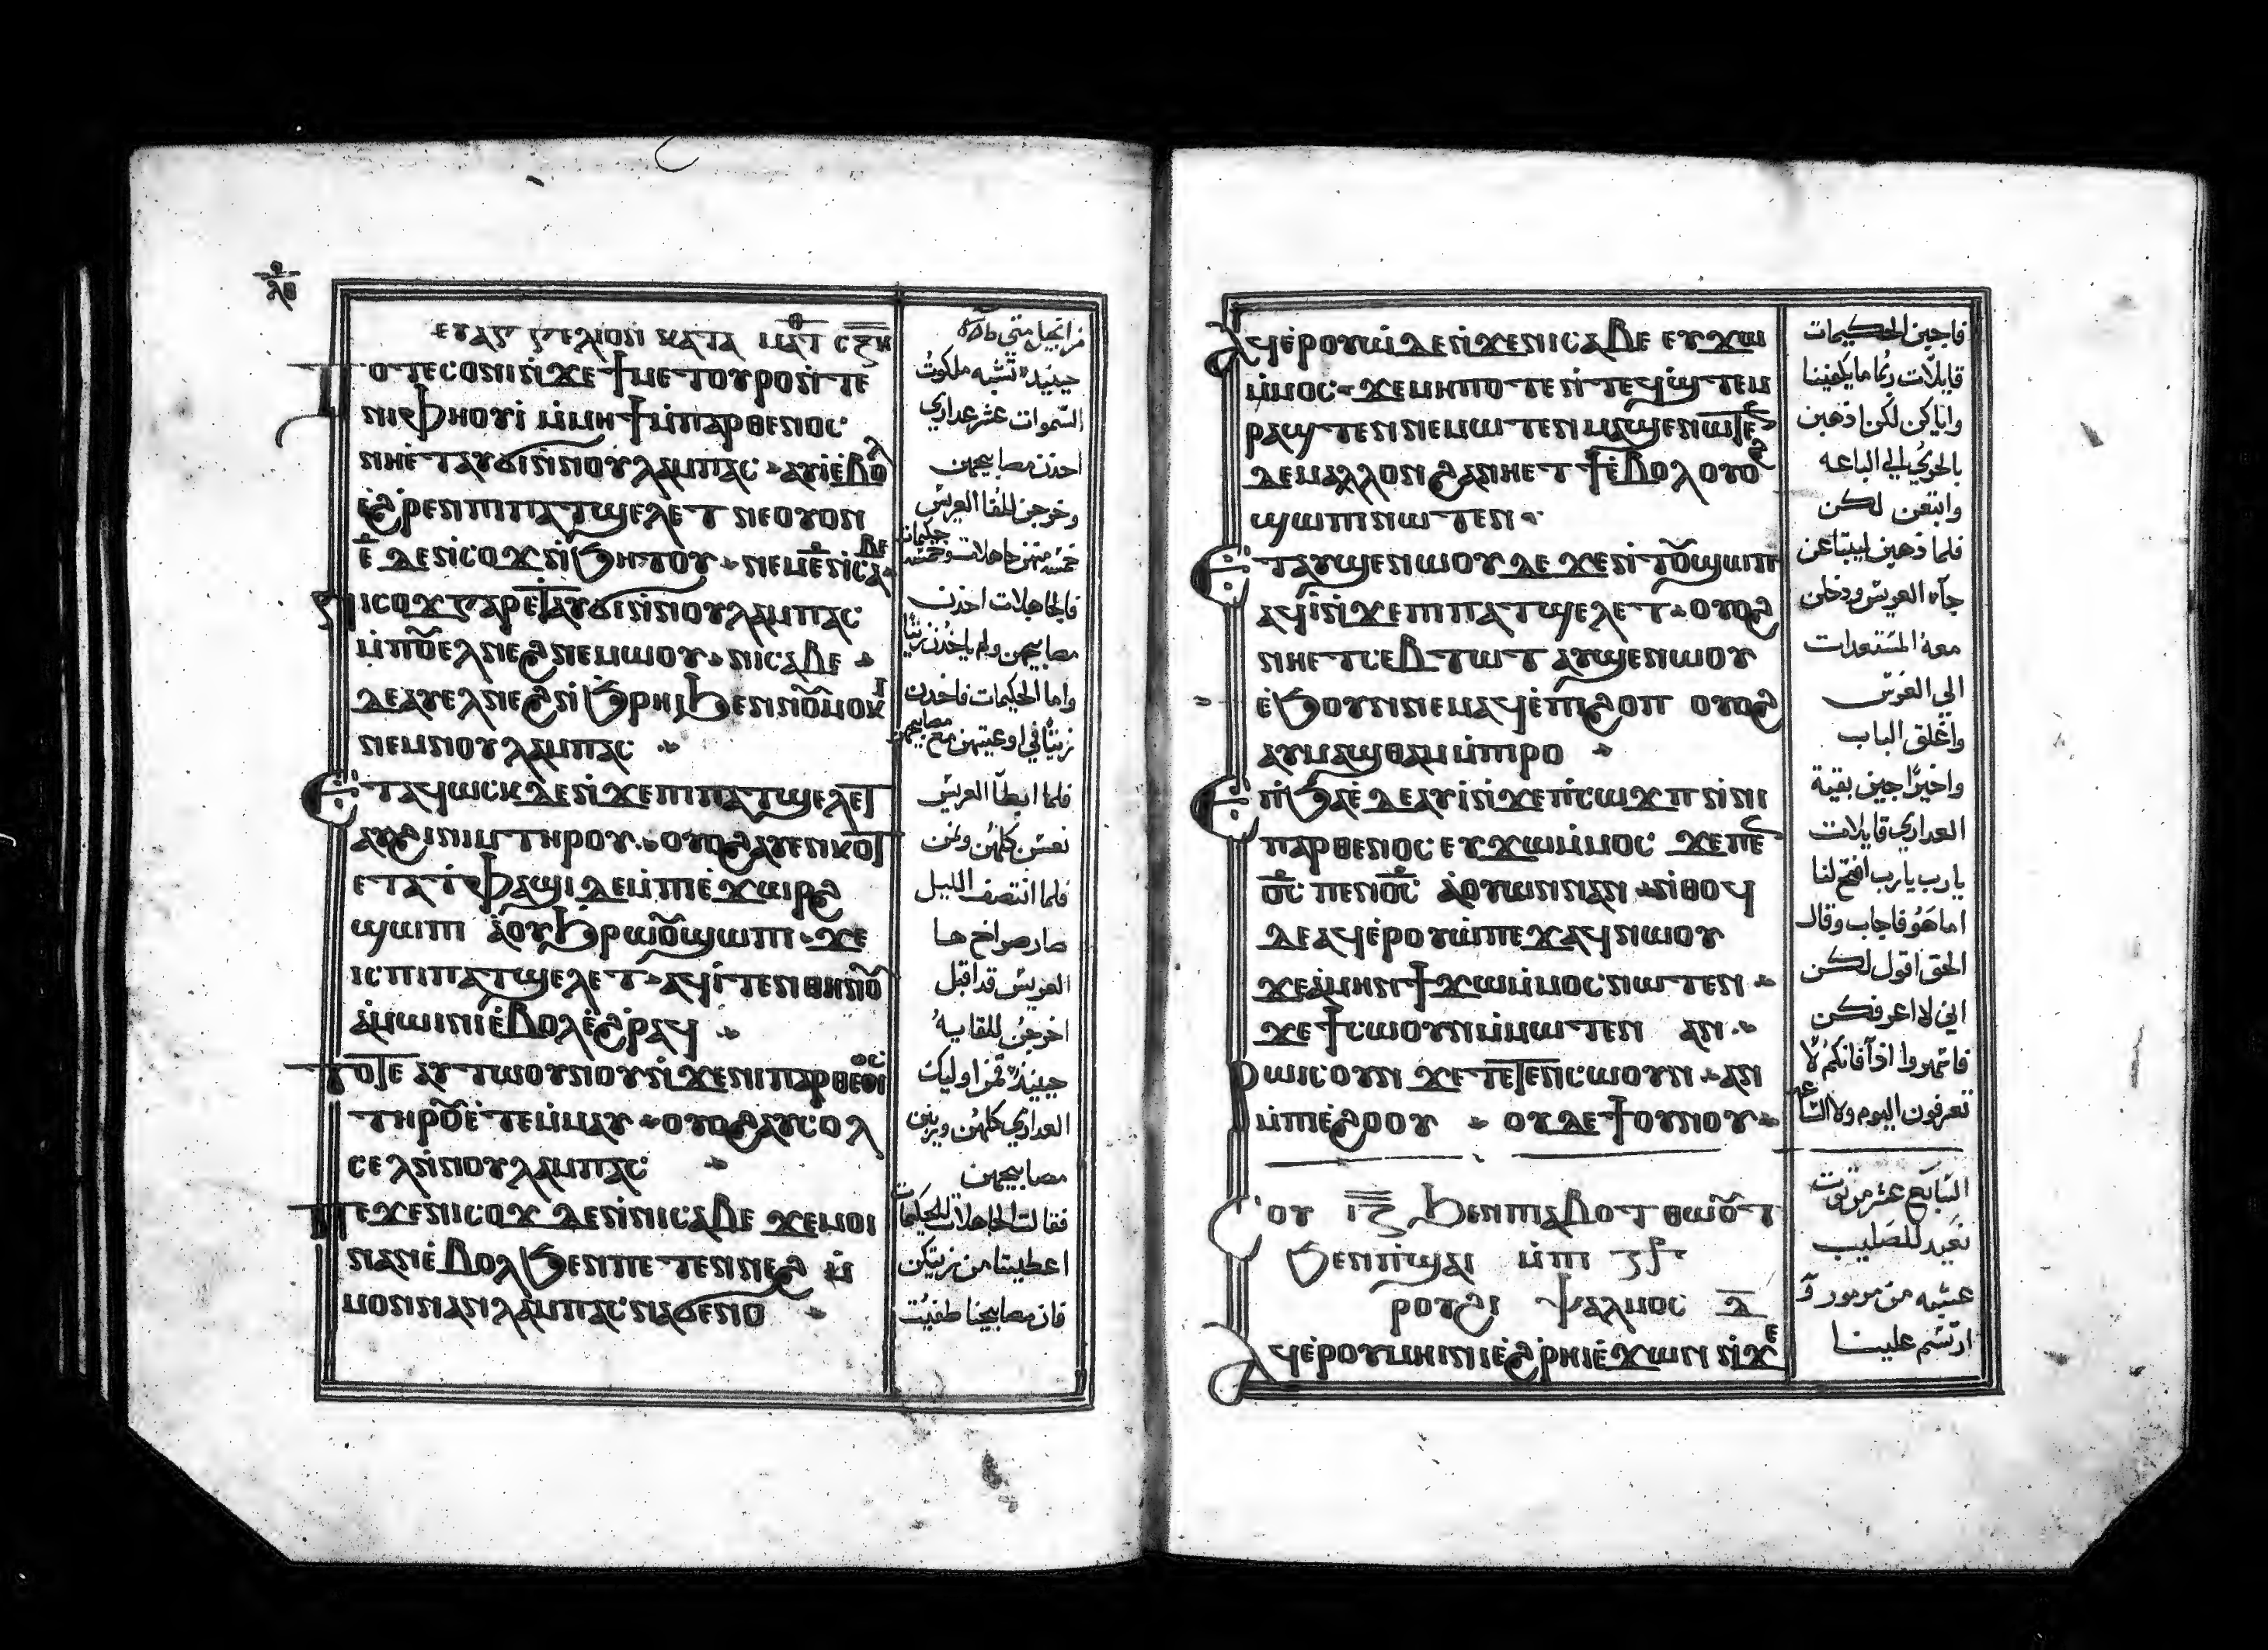 ⲗⲑ
ⲉⲩⲁⲅⲅⲉⲗⲓⲟⲛ ⲕⲁⲧⲁ ⲙⲁⲧ ⲥⲝⲏ
ⲧⲟⲧⲉⲥⲟⲛⲓ ⲛ̀ϫⲉ ϯⲙⲉⲧⲟⲩⲣⲟ ⲛ̀ⲧⲉ
ⲛⲓⲫⲏⲟⲩⲓ̀ ⲙ̀ⲙⲏϯ ⲙ̀ⲡⲁⲣⲑⲉⲛⲟⲥ
ⲛⲏⲉ̀ⲧⲁⲩϭⲓ ⲛ̀ⲛⲟⲩⲗⲁⲙⲡⲁⲥ ⲁⲩⲓ̀ ⲉ̀ⲃⲟⲗ
ⲉ̀ϩ̀ⲣⲉⲛ ⲡⲓⲡⲁⲧϣⲉⲗⲉⲧ ⲛⲉ ⲟⲩⲟⲛ
ⲉ̅ ⲇⲉ ⲛ̀ⲥⲟϫ ⲛ̀ϧⲏⲧⲟⲩ ⲛⲉⲙ ⲉ̅ ⲛ̀ⲥⲁⲃⲉ
ⲛⲓⲥⲟϫ ⲅⲁⲣ ⲉⲧⲁⲩϭⲓ ⲛ̀ⲛⲟⲩⲗⲁⲙⲡⲁⲥ
ⲙ̀ⲡⲟⲩⲉⲗ ⲛⲉϩ ⲛⲉⲙⲱⲟⲩ ⲛⲓⲥⲁⲃⲉ
ⲇⲉ ⲁⲩⲉⲗ ⲛⲉϩ ⲛ̀ϧⲣⲏⲓ ϧⲉⲛ ⲛⲟⲩⲙⲟⲕⲓ
ⲛⲉⲙ ⲛⲟⲩⲗⲁⲙⲡⲁⲥ
ⲉⲧⲁϥⲱⲥⲕ ⲇⲉ ⲛ̀ϫⲉ ⲡⲓⲡⲁⲧϣⲉⲗⲉⲧ
ⲁⲩϩⲓⲛⲓⲙ ⲧⲏⲣⲟⲩ ⲟⲩⲟϩ ⲁⲩⲉⲛⲕⲟⲧ
ⲉⲧⲁ ⲧ̀ⲫⲁϣⲓ ⲇⲉ ⲙ̀ⲡⲓⲉ̀ϫⲱⲣϩ
ϣⲱⲡⲓ ⲁ̀ ⲟⲩϧⲣⲱⲟⲩ ϣⲱⲡⲓ ϫⲉ
ⲓⲥ ⲡⲓⲡⲁⲧϣⲉⲗⲉⲧ ⲁϥⲓ̀ ⲧⲉⲛ ⲑⲏⲛⲟⲩ
ⲁ̀ⲙⲱⲓⲛⲓ ⲉ̀ⲃⲟⲗ ⲉ̀ϩ̀ⲣⲁϥ
ⲧⲟⲧⲉ ⲁⲩⲧⲱⲟⲩⲛⲟⲩ ⲛ̀ϫⲉ ⲛⲓⲡⲁⲣⲑⲉⲛⲟⲥ
ⲧⲏⲣⲟⲩ ⲉ̀ⲧⲉⲙ̀ⲙⲁⲩ ⲟⲩⲟϩ ⲁⲩⲥⲟⲗ
ⲥⲉⲗ ⲛ̀ⲛⲟⲩⲗⲁⲙⲡⲁⲥ
ⲡⲉϫⲉ ⲛⲓⲥⲟϫ ⲇⲉ ⲛ̀ⲛⲓⲥⲁⲃⲉ ϫⲉ ⲙⲟⲓ
ⲛⲁⲛ ⲉ̀ⲃⲟⲗ ϧⲉⲛ ⲡⲉⲧⲉⲛⲛⲉϩ ⲙ̀
ⲙⲟⲛ ⲛⲁⲛⲗⲁⲙⲡⲁⲥ ⲛⲁϭⲉⲛⲟ
من انجيل متى
حينيذ تشبه ملكوت
السموات عشر عداري
احدن مصابيحهن
وخرجن للقا العريس
خمسه منهن جاهلات وخمسه حكيمات
فالجاهلات احدن
مصابيحهن ولم ياخدن زيتا
واما الحكيمات فاخدن
زيتا في اوعيتهن مع مصابيحهن
فلما ابطا العريس
نعسن كلهن ونمن
فلما انتصف الليل
صار صراخ ها
العريس قد اقبل
اخرجن للقايه
حينيذ قمن اوليك
العداري كلهن وزينن
مصابيحهن
فقالت الجاهلات للحكيمات
اعطيننا من زيتكن
فان مصابيحنا طفيت
ⲁϥⲉ̀ⲣⲟⲩⲱ̀ ⲇⲉ ⲛ̀ϫⲉ ⲛⲓⲥⲁⲃⲉ ⲉⲩϫⲱ
ⲙ̀ⲙⲟⲥ ϫⲉ ⲙⲏⲡⲟⲧⲉ ⲛ̀ⲧⲉϥϣ̀ⲧⲉⲙ
ⲣⲁϣⲧⲉⲛ ⲛⲉⲙⲱⲧⲉⲛ ⲙⲁϣⲉⲛⲱⲧⲉⲛ
ⲇⲉ ⲙⲁⲗⲗⲟⲛ ϩⲁ ⲛⲏⲉⲧϯ ⲉ̀ⲃⲟⲗ ⲟⲩⲟϩ
ϣⲱⲡ ⲛⲱⲧⲉⲛ
ⲉⲧⲁⲩϣⲉⲛⲱⲟⲩ ⲇⲉ ϫⲉ ⲛ̀ⲧⲟⲩϣⲱⲡ
ⲁϥⲓ̀ ⲛ̀ϫⲉ ⲡⲓⲡⲁⲧϣⲉⲗⲉⲧ ⲟⲩⲟϩ
ⲛⲏⲉⲧⲥⲉⲃⲧⲱⲧ ⲁⲩϣⲉⲛⲱⲟⲩ
ⲉ̀ϧⲟⲩⲛ ⲛⲉⲙⲁϥ ⲉ̀ⲡⲓϩⲟⲡ ⲟⲩⲟϩ
ⲁⲩⲙⲁϣⲑⲁⲙ ⲙ̀ⲡⲓⲣⲟ
ⲉⲡ̀ϧⲁⲉ̀ ⲇⲉ ⲁⲩⲓ̀ ⲛ̀ϫⲉ ⲡ̀ⲥⲱϫⲡ ⲛ̀ⲛⲓ
ⲡⲁⲣⲑⲉⲛⲟⲥ ⲉⲩϫⲱ ⲙ̀ⲙⲟⲥ ϫⲉ ⲡⲉⲛ
ⲟ̅ⲥ̅ ⲡⲉⲛⲟ̅ⲥ̅ ⲁ̀ⲟⲩⲱⲛ ⲛⲁⲛ ⲛ̀ⲑⲟϥ
ⲇⲉ ⲁϥⲉ̀ⲣⲟⲩⲱ̀ ⲡⲉϫⲁϥ ⲛⲱⲟⲩ
ϫⲉ ⲁ̀ⲙⲏⲛ ϯϫⲱ ⲙ̀ⲙⲟⲥ ⲛⲱⲧⲉⲛ
ϫⲉ ϯⲥⲱⲟⲩⲛ ⲙ̀ⲙⲱⲧⲉⲛ ⲁⲛ
ⲣⲱⲓⲥ ⲟⲩⲛ ϫⲉ ⲧⲉⲧⲉⲛⲥⲱⲟⲩⲛ ⲁⲛ
ⲙ̀ⲡⲓⲉ̀ϩⲟⲟⲩ ⲟⲩⲇⲉ ϯⲟⲩⲛⲟⲩ
ⲥⲟⲩ ⲓ̅ⲍ̅ ϧⲉⲛ ⲡⲓⲁⲃⲟⲧ ⲑⲱⲟⲩⲧ
ϧⲉⲛ ⲡ̀ϣⲁⲓ ⲙ̀ⲡⲓ
ⲣⲟⲩϩⲓ ⲯⲁⲗⲙⲟⲥ ⲇ̅
ⲁϥⲉ̀ⲣⲟⲩⲙⲏⲓⲛⲓ ⲉ̀ϩ̀ⲣⲏⲓ ⲉ̀ϫⲱⲛ ⲛ̀ϫⲉ
فاجبن الحكيمات
قايلات ربما ما يكفينا
واياكن لكن اذهبن
بالحري الي الباعه
وابتعن لكن
فلما ذهبن ليبتاعن
جآء العريس ودخلن
معه المستعدات
الي العرس
واغلق الباب
واخيرا جين بقية
العداري قايلات
يارب يارب افتح لنا
اما هو فاجاب وقال
الحق اقول لكن
اني لا اعرفكن
فاسهروا اذآ فانكم لا
تعرفون اليوم ولا الساعه
السابع عشر من توت
عيد للصليب
عشيه من مزمور
ارتسم علينا